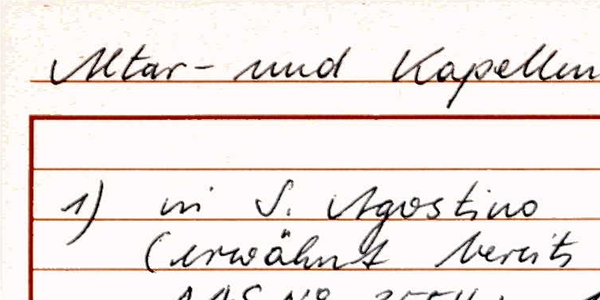 Altar- und Kapellen
1) in S. Agostino
(erwähnt bereits